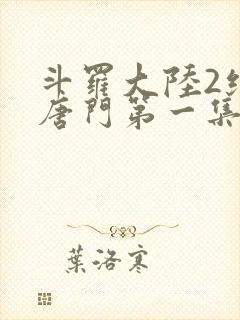 斗羅大陸2
唐門第一集
葉洛寒